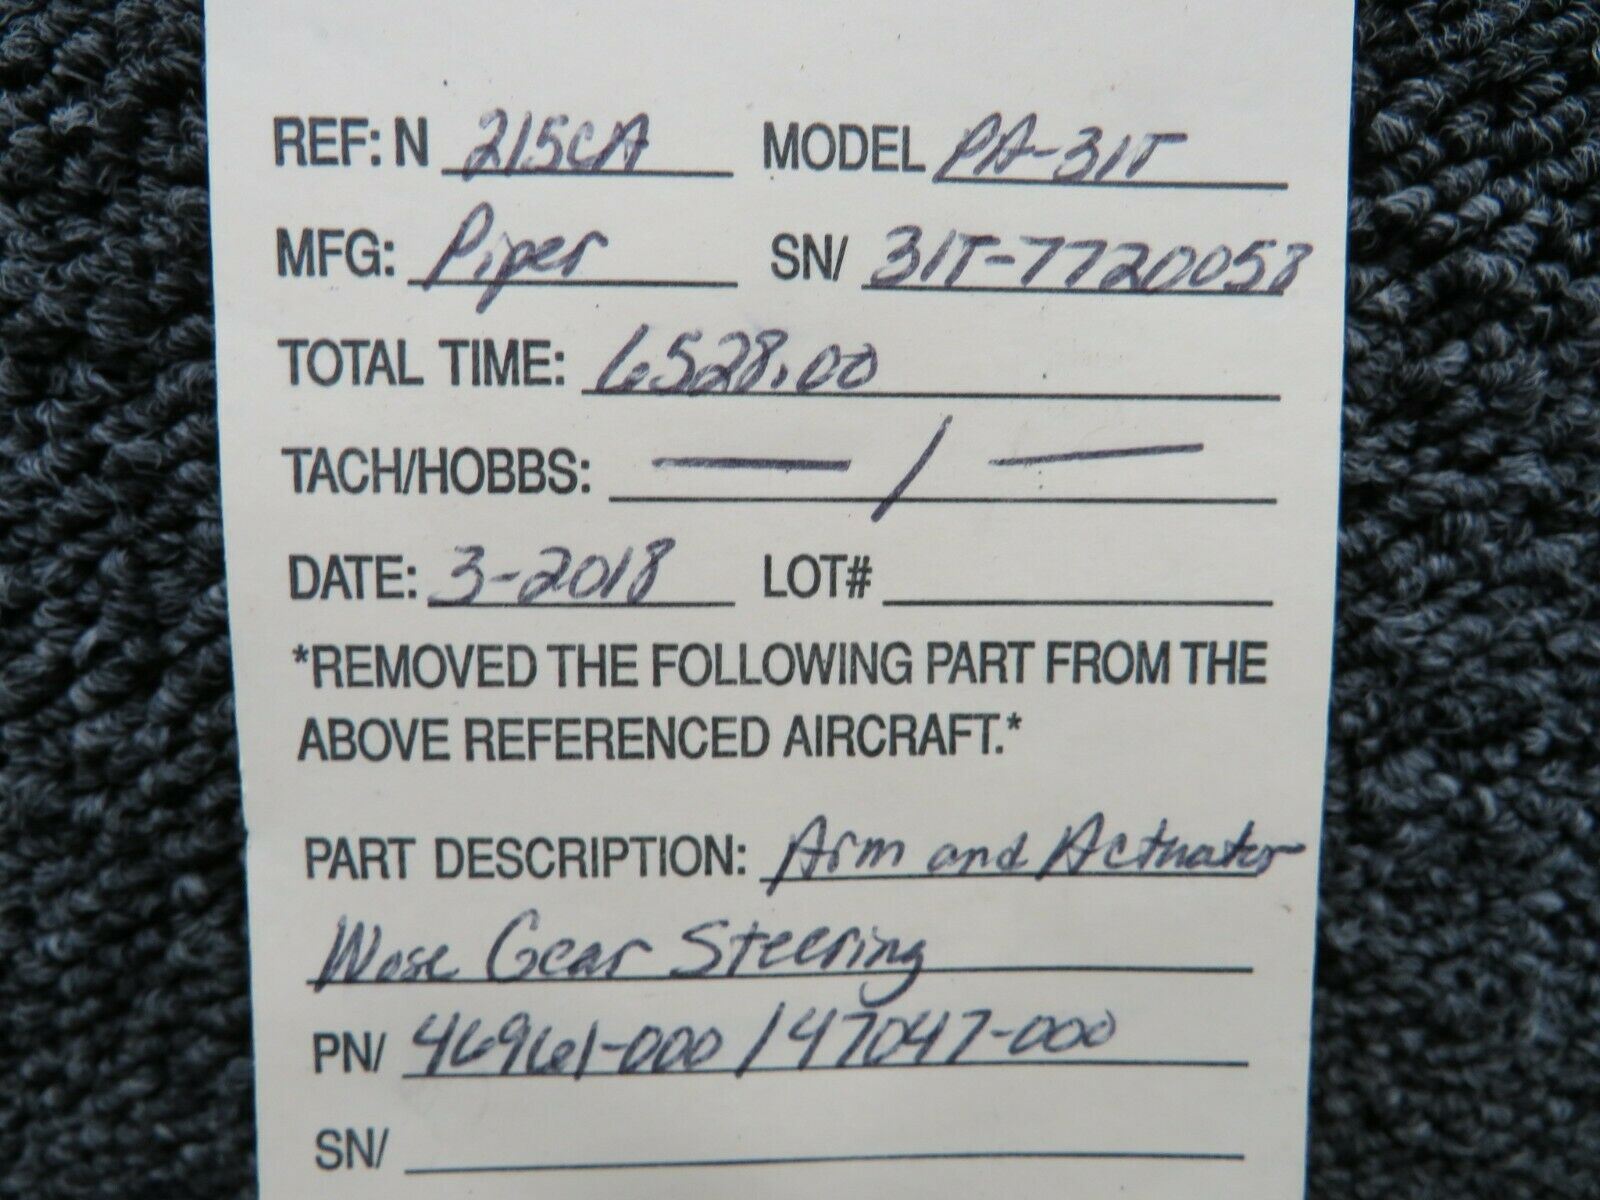 REF: N 215CA MODEL PA-31T
MFG: Piper SN/ 31T-7720058
TOTAL TIME: 6528.00
TACH/HOBBS: — / —
DATE: 3-2018 LOT#
*REMOVED THE FOLLOWING PART FROM THE
ABOVE REFERENCED AIRCRAFT.*
PART DESCRIPTION: Arm and Actuator
Nose Gear Steering
PN/ 46961-000 / 47047-000
SN/